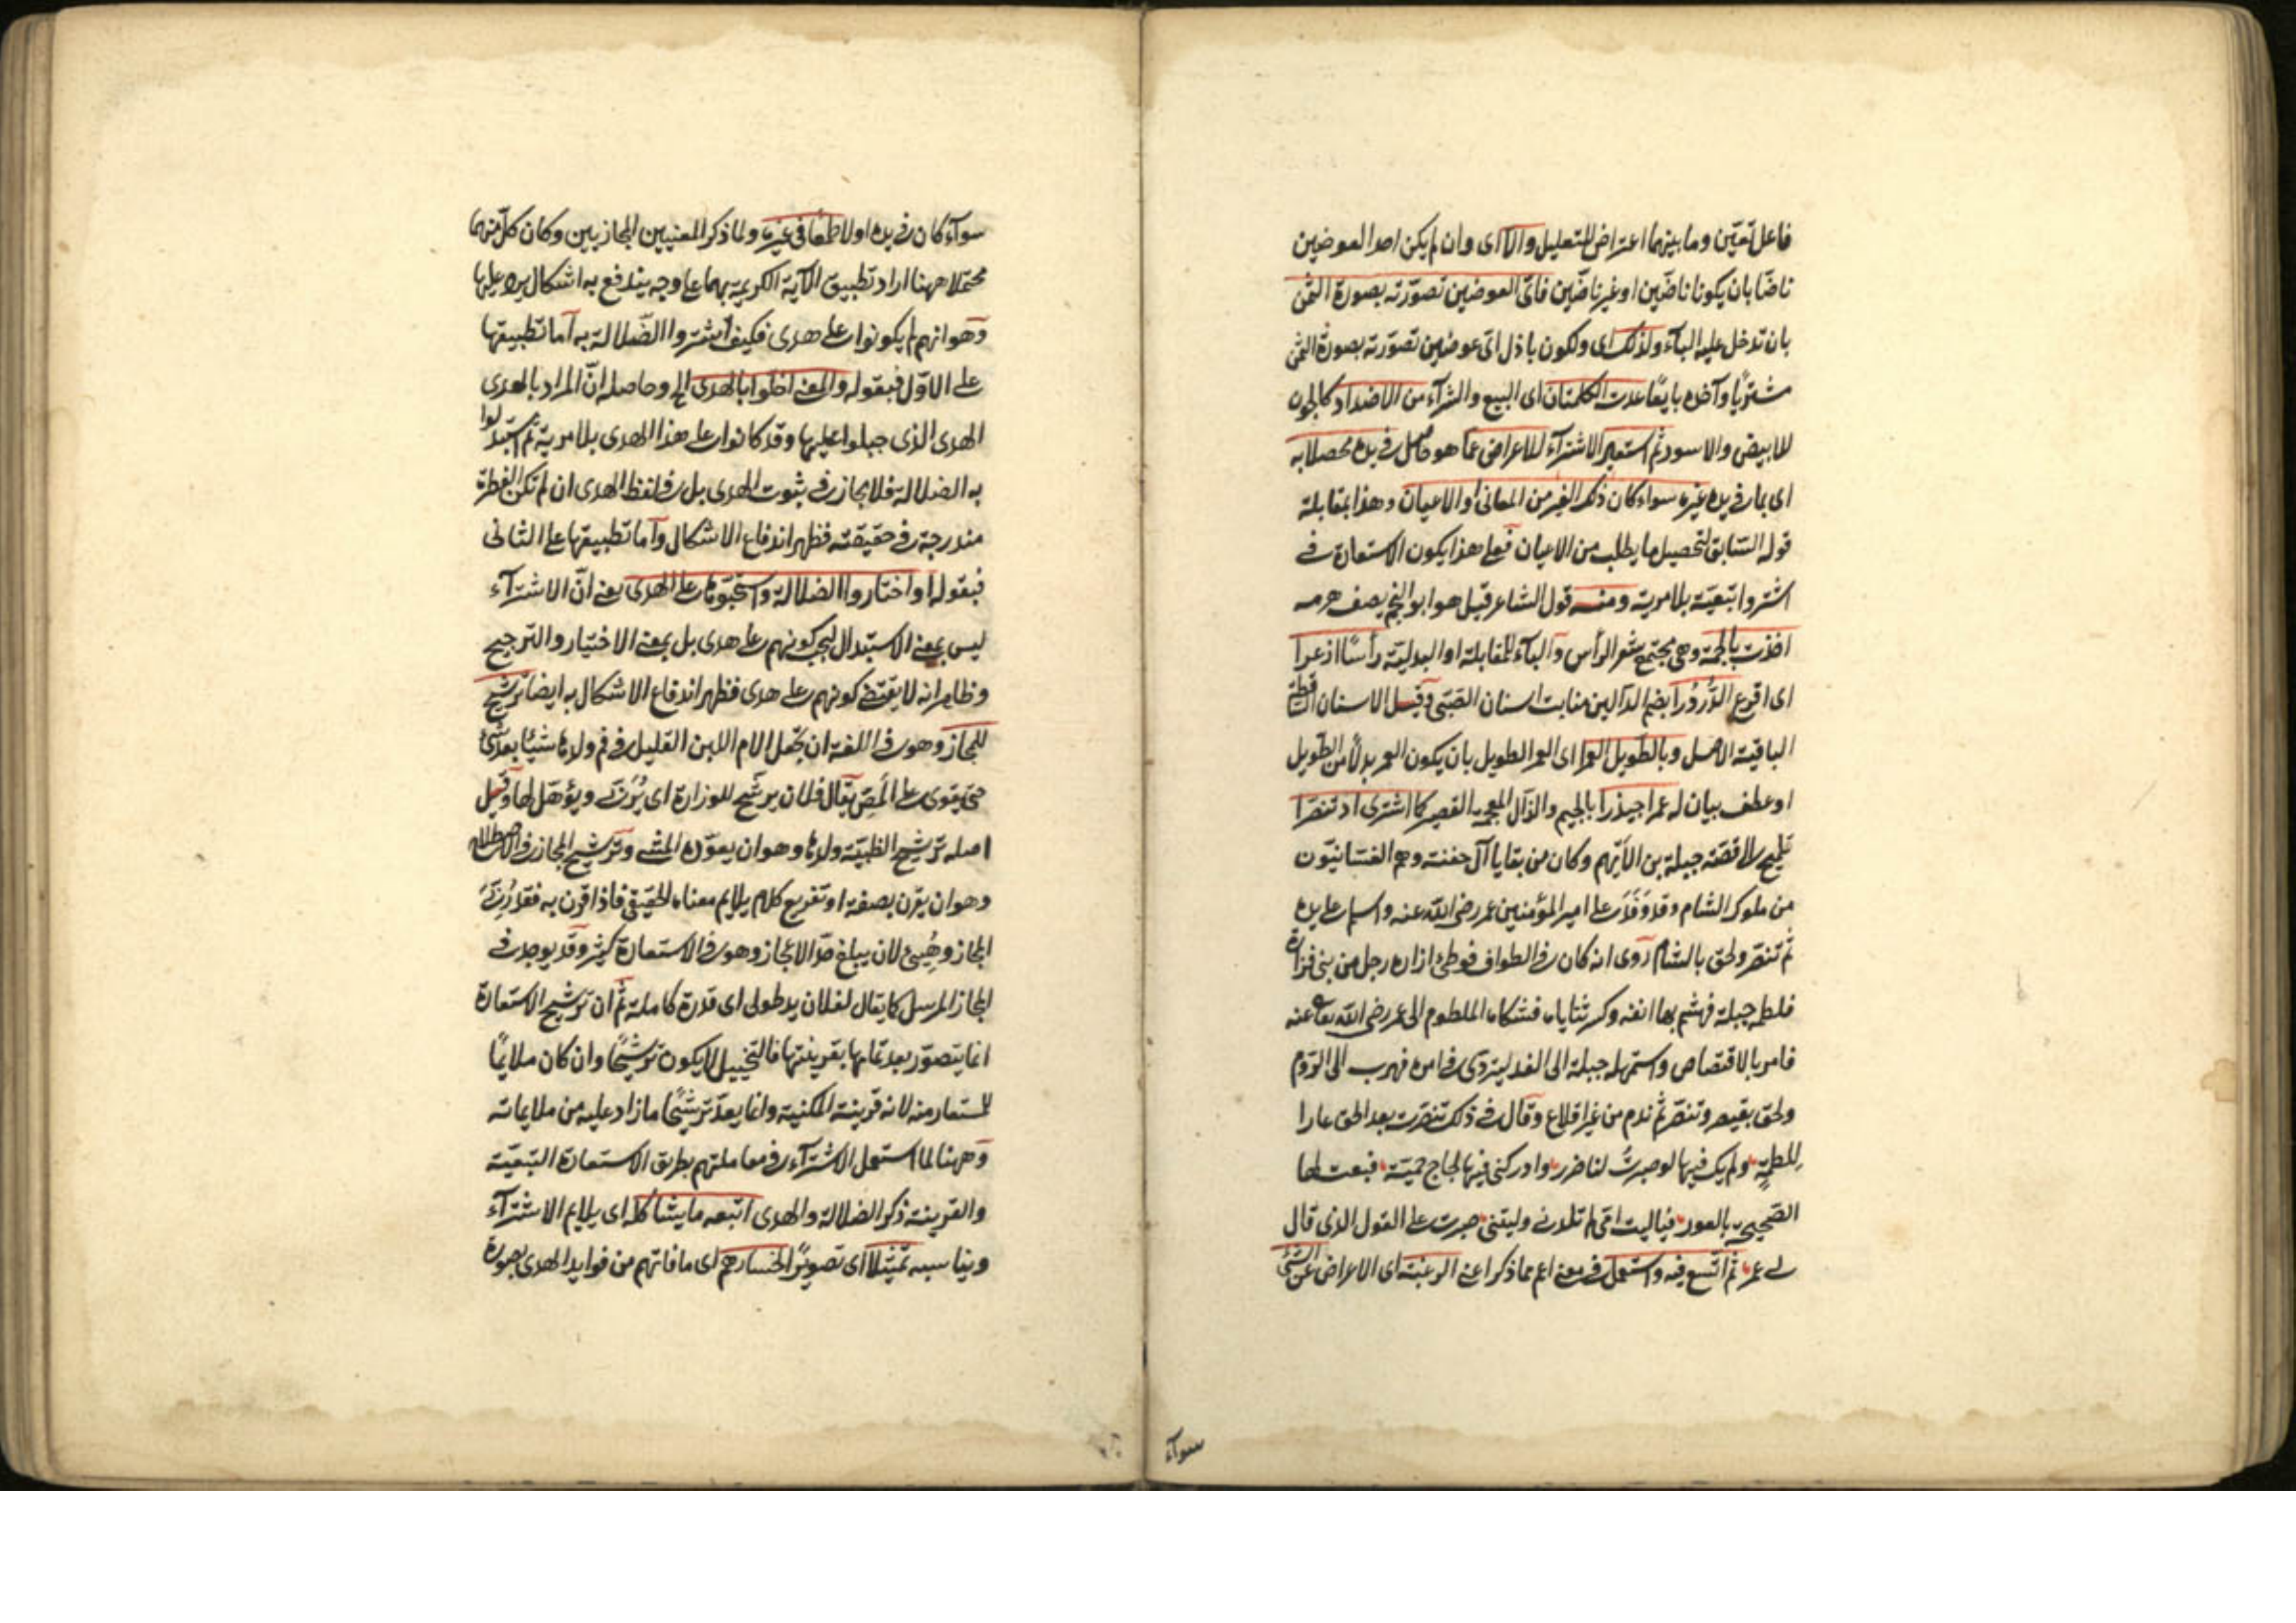 فاعل تعيّن وما بينهما اعتراض للتعليل والا اى وان لم يكن احد العوضين
ناضّا بان يكونا ناضّين او غير ناضّين فاىّ العوضين تصوّرته بصورة الثمن
بان تدخل عليه البآء ولذلك اى ولكون باذل اىّ عوضين تصوّرته بصورة الثمن
مشتريًا وآخذه بايعًا عدت الكلمتان اى البيع والشرآء من الاضداد كالجون
للابيض والاسود ثم استعير الاشترآء للاعراض عمّا هو حاصل فى يده محصلا به
اى بما فى يده غيره سواء كان ذلك الغير من المعانى او الاعيان وهذا بمقابلة
قوله السّابق لتحصيل ما يطلب من الاعيان فعلى هذا يكون الاستعارة فى
اشتروا تبعيّة بلا مرية ومنه قول الشاعر قيل هو ابو النجم يصف هرمه
اخذت بالجمة وهى مجتمع شعر الرأس والبآء للمقابلة او البدليّة رأسًا ازعرا
اى اقرع الدُّردُرا بضم الدالين منابت اسنان الصّبى وقيل الاسنان الساقطة
الباقية الاصل وبالطّويل العمرا اى العمر الطويل بان يكون العمر بدلًا من الطّويل
او عطف بيان له عمرا جيذرا بالجيم والذّال المعجمة القصير كما اشترى اذ تنصّرا
تلميح الى قصّة جبلة بن الايّهم وكان من بقايا آل جفنة وهم الغسّانيّون
من ملوك الشام وقد وَفَدَ على امير المؤمنين عمر رضى الله عنه واسلم على يده
ثم تنصّر ولحق بالشام روى انه كان فى الطواف فوطئ ازاره رجل من بنى فزارة
فلطمه جبلة فهشم بها انفه وكسر ثناياه فشكاه الملطوم الى عمر رضى الله تعالى عنه
فامر بالاقتصاص واستمهله جبلة الى الغد ليتروّى فى امره فهرب الى الرّوم
ولحق بقيصر وتنصّر ثم ندم من غير اقلاع وقال فى ذلك تنصّرت بعد الحق عارا
للطمةٍ ولم يك فيها لو صبرتُ لنا ضرر وادركنى فيها لجاج حميّة فبعت لها
الصّحيحة بالعور فياليت امّى لم تلدنى وليتنى صبرت على القول الذى قال
لى عمر ثم اتّسع فيه واستعمل فى معنى اعم مما ذكر اعنى الرغبة اى الاعراض عن الشئ
سوآء
سوآء كان فى يده اولا طمعا فى غيره ولما ذكر المعنيين المجازيين وكان كلّ منهما
محتملا ههنا اراد تطبيق الآية الكريمة بهما على وجه يندفع به اشكال يرد عليها
وهو انهم لم يكونوا على هدى فكيف اشتروا الضّلالة به اما تطبيقها
على الاوّل فبقوله والمعنى اخلّوا بالهدى الخ وحاصله انّ المراد بالهدى
الهدى الذى جبلوا عليها وقد كانوا على هذا الهدى بلا مرية ثم استبدلوا
به الضلالة فلا مجاز فى ثبوت الهدى بل فى لفظ الهدى ان لم تكن الفطرة
مندرجة فى حقيقته فظهر اندفاع الاشكال واما تطبيقها على الثانى
فبقوله او اختاروا الضلالة واستحبّوها على الهدى يعنى انّ الاشترآء
ليس بمعنى الاستبدال ليجب كونهم على هدى بل بمعنى الاختيار والترجيح
وظاهر انه لا يقتضى كونهم على هدى فظهر اندفاع الاشكال به ايضا ترشيح
للمجاز وهو فى اللغة ان تجعل الام اللبن القليل فى فم ولدها شيئًا بعد شئ
حتى يقوى على المَصّ يقال فلان يرشّح للوزارة اى يُربّى ويؤهّل لها وقيل
اصله ترشيح الظبيّة ولدها وهو ان يعوّده المشى وترشيح المجاز فى الاصطلاح
وهو ان يقرن بصفة او تفريع كلام يلايم معناه الحقيقى فاذا قرن به فقد رُبّىَ
المجاز وهُيئ لان يبلغ حدّ الاعجاز وهو فى الاستعارة كثير وقد يوجد فى
المجاز المرسل كما يقال لفلان يد طولى اى قدرة كاملة ثم ان ترشيح الاستعارة
انما يتصوّر بعد تمامها بقرينتها فالتخييل لا يكون ترشيحًا وان كان ملايمًا
للمستعار منه لانه قرينة المكنية وانما يعدّ ترشيحًا ما زاد عليه من ملايماته
وههنا لما استعمل الاشترآء فى معاملتهم بطريق الاستعارة التبعيّة
والقرينة ذكر الضلالة والهدى اتبعه ما يشاكله اى يلايم الاشترآء
ويناسبه تمثيلا اى تصويرًا لخسارهم اى ما فاتهم من فوايد الهدى بصورة